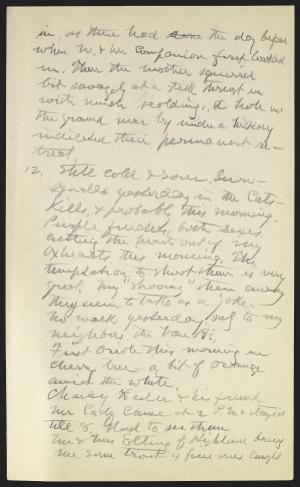 in, as there had been the day before
when W. & her companion first looked
in. Then the mother squirrel
bit savagely at a stick thrust in
with much scolding. A hole in
the ground near by under a hickory
indicated their permanent re-
treat.
12. Still cold & sour. Snow-
squalls yesterday in the Cats-
kills, & probably this morning.
Purple finches, both sexes,
cutting the hearts out of my
oxhearts this morning. The
temptation to shoot them is very
great. My "shooing" them away
they seem to take as a joke.
No walk yesterday, only to my
neighbors, the Van
First Oriole this morning in
cherry tree – a bit of orange
amid the white.
Charley Keeler & his friend
Mr Cady came at 2 P.M. & stayed
till 8. Glad to see them
Mr & Mrs Elting of Highland bring
me some trout, 4 fine ones caught